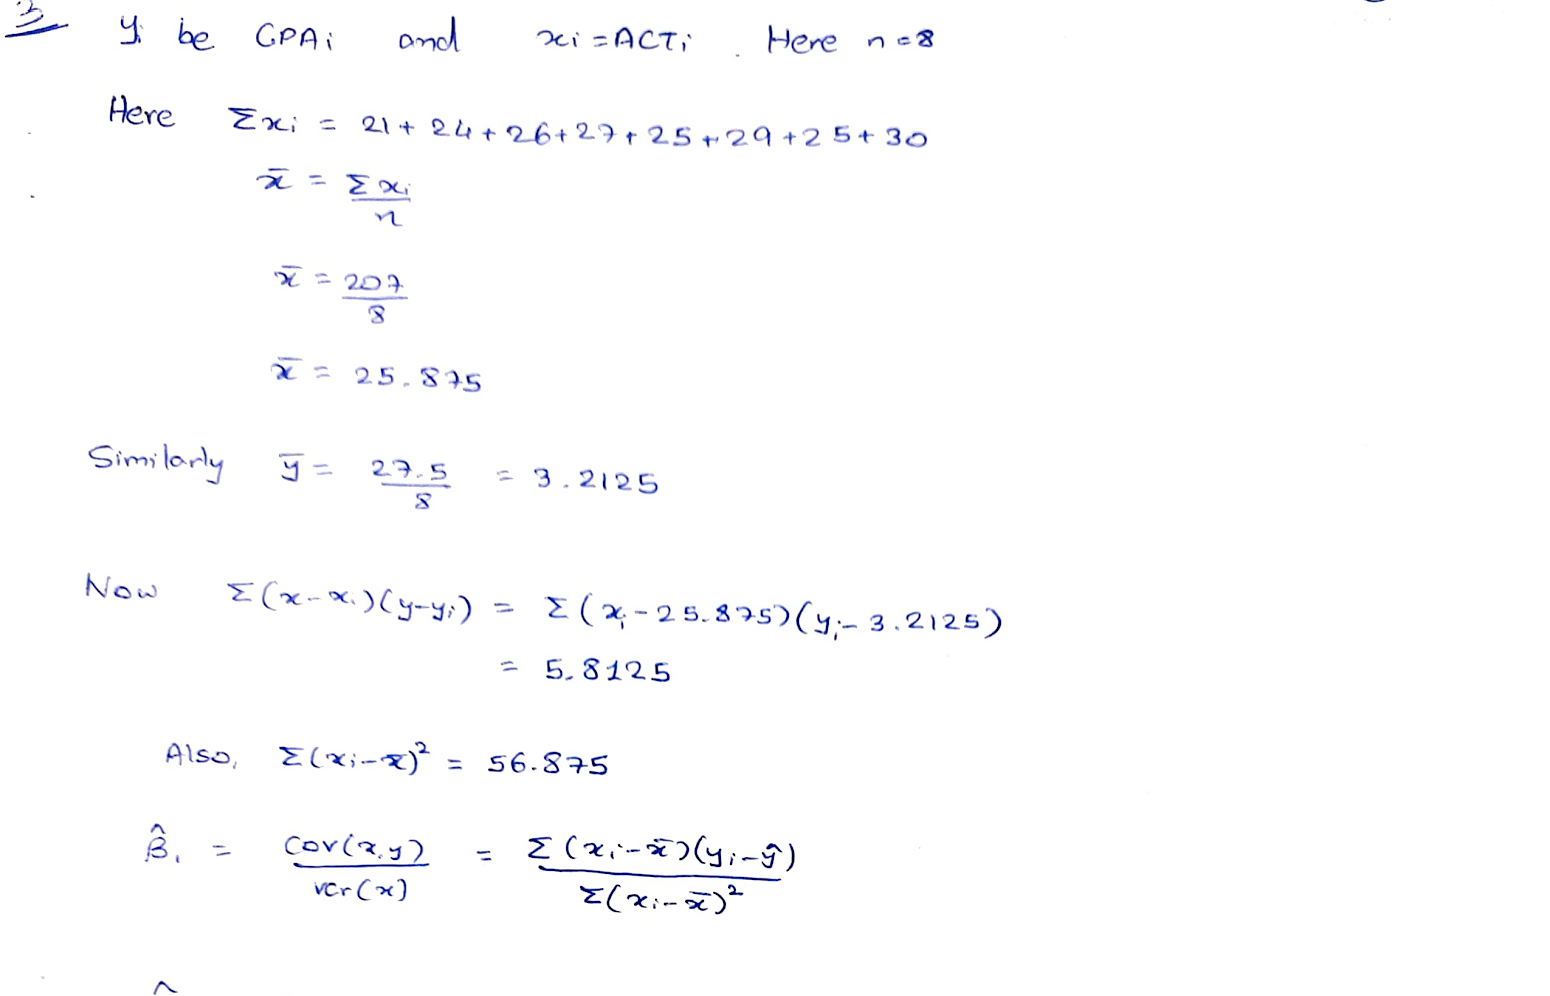 3
yᵢ be GPAᵢ and xᵢ = ACTᵢ . Here n = 8
Here Σxᵢ = 21 + 24 + 26 + 27 + 25 + 29 + 25 + 30
x̄ = Σxᵢ / n
x̄ = 207 / 8
x̄ = 25.875
Similarly ȳ = 27.5 / 8 = 3.2125
Now Σ(x - xᵢ)(y - yᵢ) = Σ(xᵢ - 25.875)(yᵢ - 3.2125)
= 5.8125
Also, Σ(xᵢ - x̄)² = 56.875
β̂₁ = Cov(x,y) / var(x) = Σ(xᵢ - x̄)(yᵢ - ŷ) / Σ(xᵢ - x̄)²